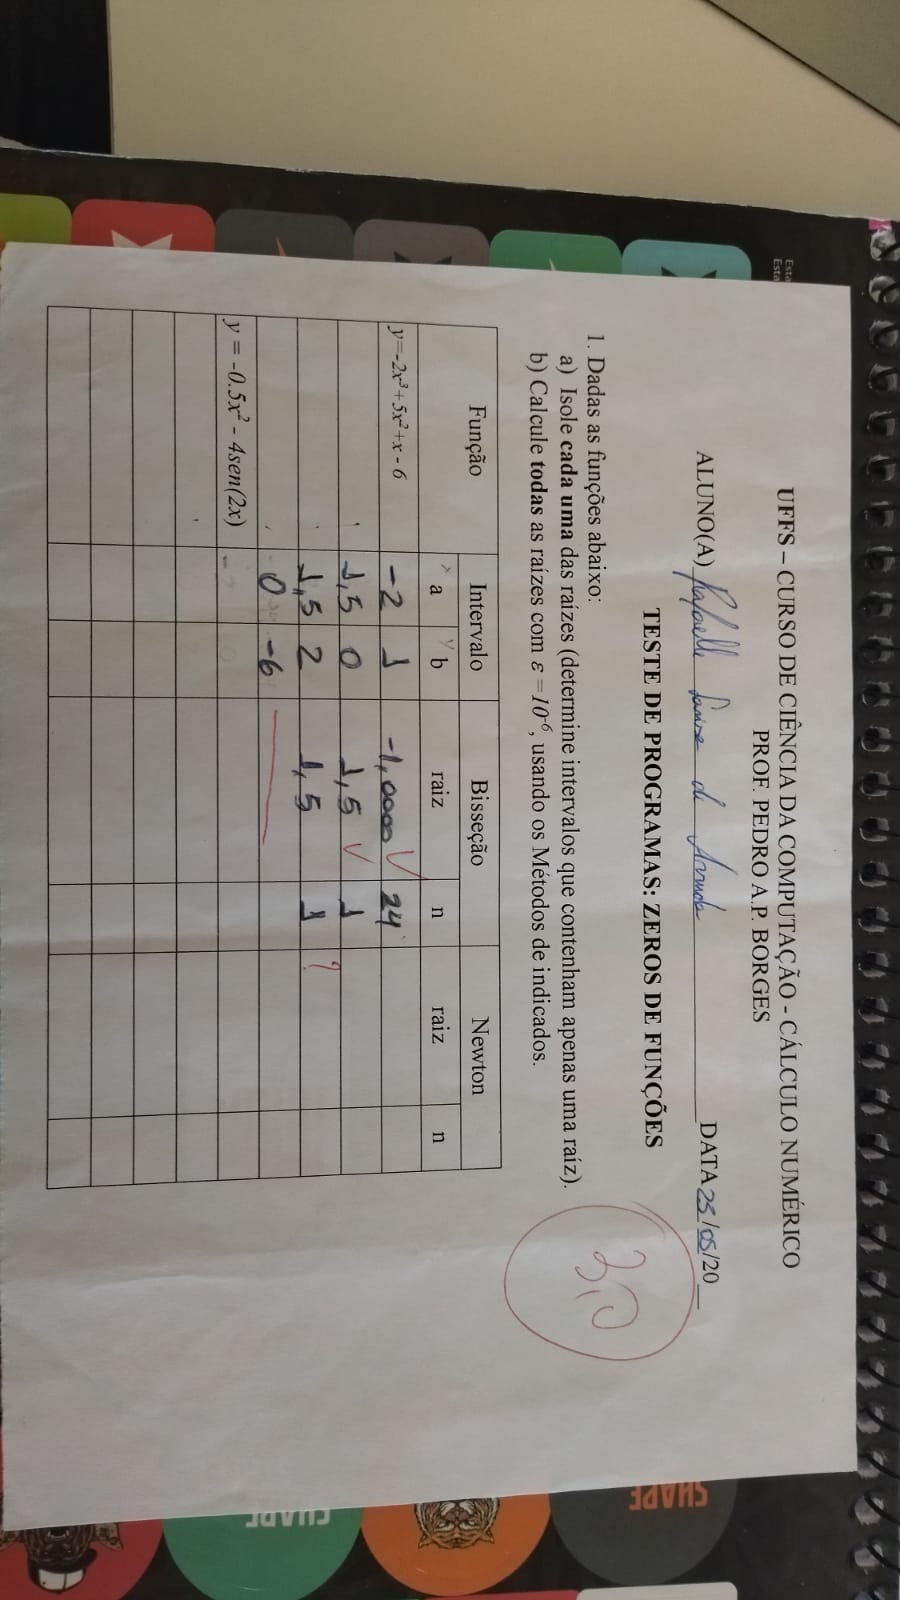 UFFS – CURSO DE CIÊNCIA DA COMPUTAÇÃO - CÁLCULO NUMÉRICO
PROF. PEDRO A.P. BORGES
ALUNO(A) de DATA 25/05/20__
TESTE DE PROGRAMAS: ZEROS DE FUNÇÕES
3,0
1. Dadas as funções abaixo:
a) Isole cada uma das raízes (determine intervalos que contenham apenas uma raíz).
b) Calcule todas as raízes com ε = 10⁻⁶, usando os Métodos de indicados.
Função Intervalo Bisseção Newton
x a y b raiz n raiz n
y=-2x³+5x²+x - 6 -2 1 -1,0000 24
1,5 0 1,5 1
1,5 2 1,5 1 ?
0 -6
y = -0.5x² - 4sen(2x)
Esta
Esta
SHARE
SHARE